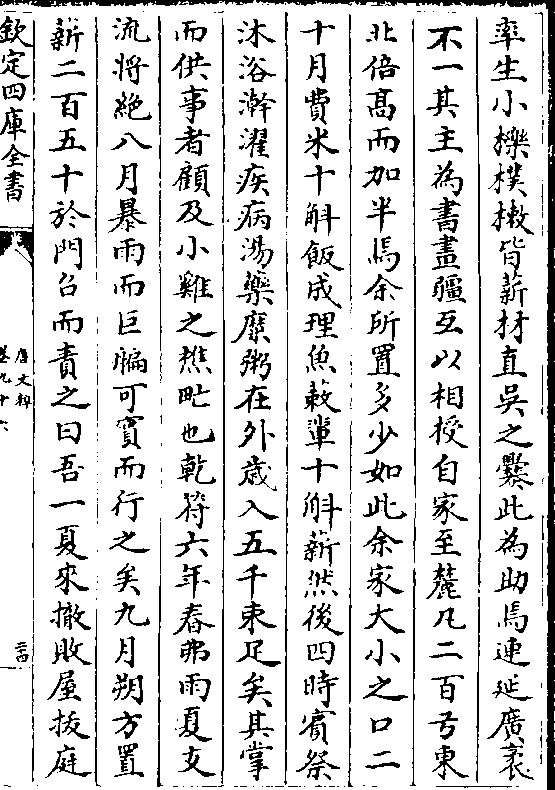 率生小櫟樸樕皆薪材直吳之爨此為助焉連延廣袤
不一其主為書畫疆互以相授自家至麓凡二百弓東
北倍高而加半焉余所置多少如此余家大小之口二
十月費米十斛飯成理魚蔌輩十斛薪然後四時賓祭
沐浴澣濯疾病湯藥糜粥在外歲入五千束足矣其掌
而供事者顧及小雞之樵甿也乾符六年春弗雨夏支
流將絶八月暴雨而巨艑可實而行之矣九月朔方置
薪二百五十於門召而責之曰吾一夏來撤敗屋拔庭
欽定四庫全書
唐文粹
卷九十六
二十四